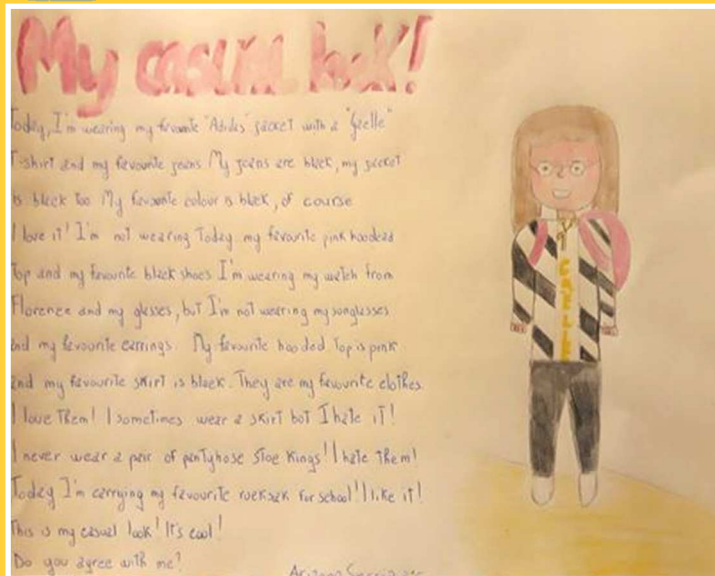 My casual look!
Today, I'm wearing my favourite "Adidas" jacket with a "Gaelle"
T-shirt and my favourite jeans My jeans are black, my jacket
is black too My favourite colour is black, of course
I love it! I'm not wearing Today my favourite pink hooded
Top and my favourite black shoes I'm wearing my watch from
Florence and my glasses, but I'm not wearing my sunglasses
and my favourite earrings. My favourite hooded Top is pink
and my favourite skirt is black. They are my favourite clothes.
I love Them! I sometimes wear a skirt bot I hate it!
I never wear a pair of pantyhose stoe Kings! I hate them!
Today I'm carrying my favourite rucksack for school! I like it!
This is my casual look! It's cool!
Do you agree with me?
GAELLE